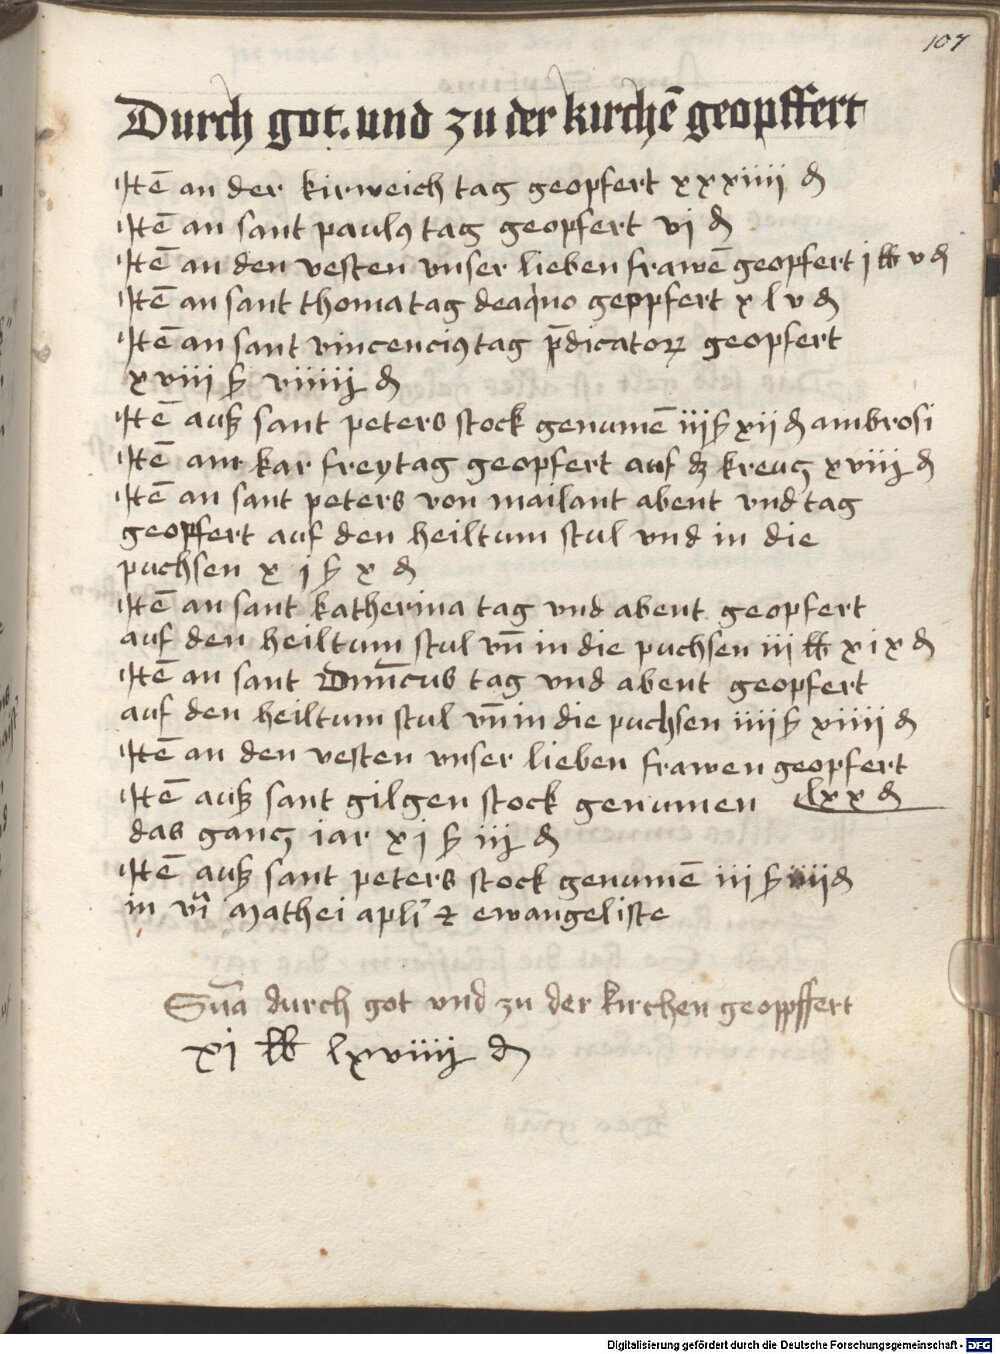 107
Durch got. und zu der kirchē geopffert
Itē an der kirweich tag geopfert xxxiiii ₰
Itē an sant paulꝯ tag geopfert vj ₰
Itē an den vesten vnser lieben frawē geopfert j ℔ v ₰
Itē an sant thoma tag deaquo geopfert x l v ₰
Itē an sant vincenciꝯ tag p̄dicatoꝝ geopfert
xviii ß viiiij ₰
Itē auß sant peters stock genumē iij ß xij ₰ ambrosi
Itē am kar freytag geopfert auf dz kreucz xviiij ₰
Itē an sant peters von mailant abent vnd tag
geopffert auf den heiltum stul vnd in die
puchsen x j ß x ₰
Itē an sant katherina tag vnd abent geopfert
auf den heiltum stul vn̄ in die puchsen iii ℔ x i x ₰
Itē an sant Dm̄cus tag vnd abent geopfert
auf den heiltum stul vn̄ in die puchsen iiii ß xiiii ₰
Itē an den vesten vnser lieben frawen geopfert
lxx ₰
Itē auß sant gilgen stock genumen
das gancz iar xj ß iij ₰
Itē auß sant peters stock genumē iij ß iiij ₰
in vĩ Mathei apl̄i ⁊ ewangeliste
Sūa durch got vnd zu der kirchen geopffert
xj ℔ lxviiij ₰
Digitalisierung gefördert durch die Deutsche Forschungsgemeinschaft - DFG